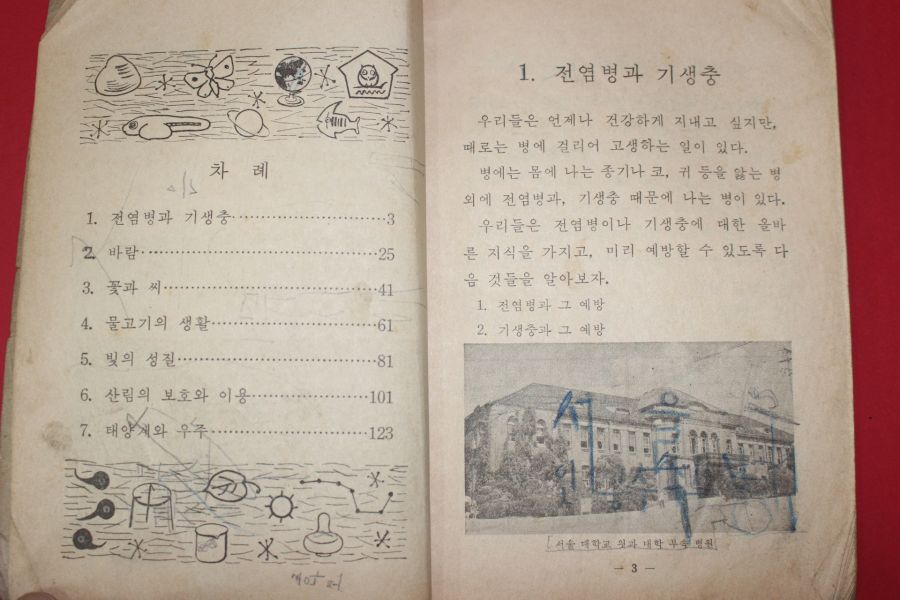 차 례
1. 전염병과 기생충……………………3
2. 바람……………………25
3. 꽃과 씨……………………41
4. 물고기의 생활……………………61
5. 빛의 성질……………………81
6. 산림의 보호와 이용……………………101
7. 태양계와 우주……………………123
1. 전염병과 기생충
우리들은 언제나 건강하게 지내고 싶지만,
때로는 병에 걸리어 고생하는 일이 있다.
병에는 몸에 나는 종기나 코, 귀 등을 앓는 병
외에 전염병과, 기생충 때문에 나는 병이 있다.
우리들은 전염병이나 기생충에 대한 올바
른 지식을 가지고, 미리 예방할 수 있도록 다
음 것들을 알아보자.
1. 전염병과 그 예방
2. 기생충과 그 예방
서울
서울 대학교 의과 대학 부속 병원
— 3 —